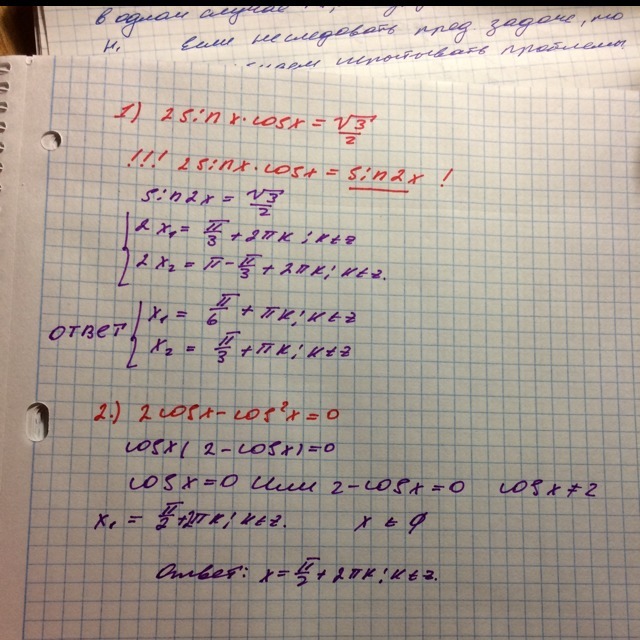 в одном случае
н. Если исследовать пред задаче, то
испытывать проблемы
1) 2sinx·cosx = √3/2
!!! 2sinx·cosx = sin2x !
sin2x = √3/2
2x₁ = π/3 + 2πk; k∈z
2x₂ = π - π/3 + 2πk; k∈z.
ответ x₁ = π/6 + πk; k∈z
x₂ = π/3 + πk; k∈z
2.) 2cosx - cos²x = 0
cosx(2 - cosx) = 0
cosx = 0 или 2 - cosx = 0 cosx ≠ 2
x₁ = π/2 + 2πk; k∈z. x ∈ ∅
Ответ: x = π/2 + 2πk; k∈z.